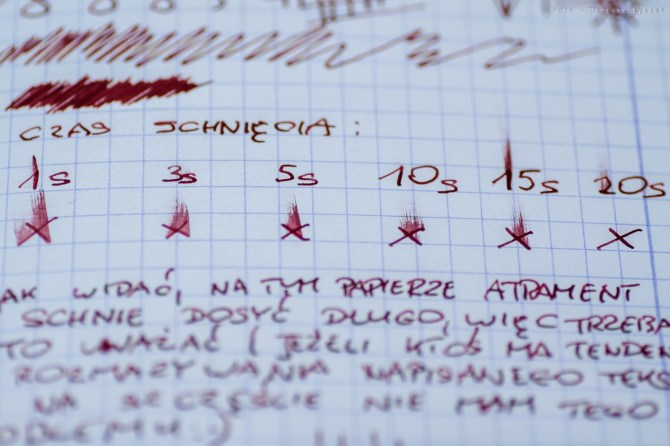 CZAS SCHNIĘCIA:
1s 3s 5s 10s 15s 20s
X X X X X X
AK WIDAĆ, NA TYM PAPIERZE ATRAMENT
SCHNIE DOSYĆ DŁUGO, WIĘC TRZEBA
TO UWAŻAĆ (JEŻELI KTOŚ MA TENDEN
ROZMAZYWANIA NAPISANEGO TEKS
NA SZCZĘŚCIE NIE MAM TEGO
OBLEMU :)